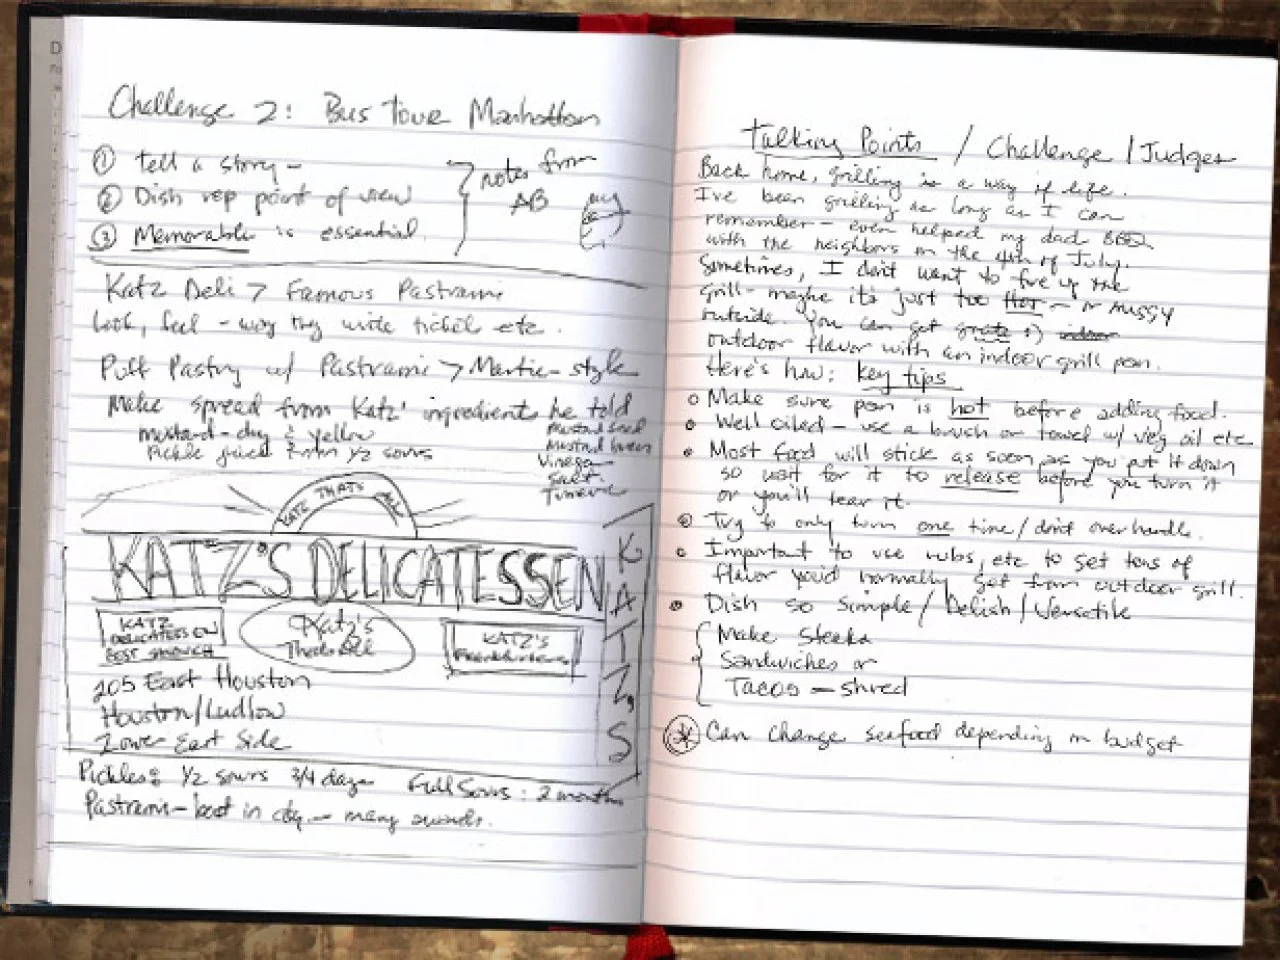 Challenge 2: Bus Tour Manhattan
① Tell a story -
② Dish rep point of view
③ Memorable is essential.
notes from
AB
Katz Deli > Famous Pastrami
Look, feel - way they write ticket etc.
Puff Pastry w/ Pastrami > Martie-style
Make spread from Katz' ingredients he told
mustard - dry & yellow
Pickle juice from 1/2 sours
Mustard Seed
Mustard brown
Vinegar
Salt
Turmeric
KATZ THAT'S ALL
KATZ'S DELICATESSEN
KATZ'S
KATZ
DELICATESSEN
BEST SANDWICH
Katz's
That's All
KATZ'S
Frankfurters
205 East Houston
Houston/Ludlow
Lower East Side
Pickles: 1/2 sours 3/4 days Full Sours: 2 months
Pastrami - best in city - many awards.
Talking Points / Challenge / Judges
Back home, grilling is a way of life.
I've been grilling as long as I can
remember - even helped my dad BBQ
with the neighbors on the 4th of July.
Sometimes, I don't want to fire up the
grill - maybe it's just too hot - or muggy
outside. You can get
outdoor flavor with an indoor grill pan.
Here's how: Key tips
Make sure pan is hot before adding food.
Well oiled - use a brush or towel w/ veg oil etc
Most food will stick as soon as you put it down
so wait for it to release before you turn it
or you'll tear it.
Try to only turn one time/don't overhandle.
Important to use rubs, etc to get tons of
flavor you'd normally get from outdoor grill.
Dish so Simple / Delish / Versatile
Make Steaks
Sandwiches or
Tacos - shred
* Can change seafood depending on budget